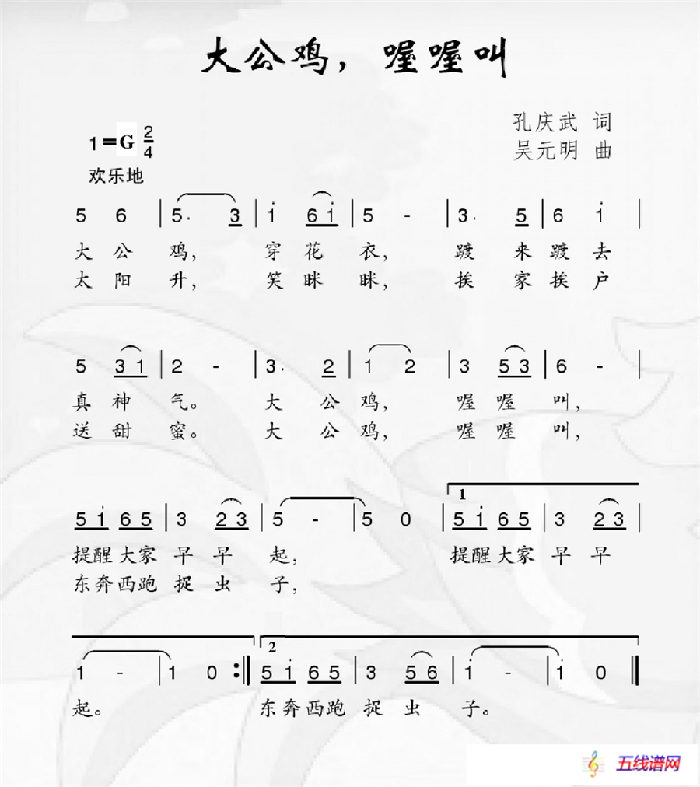 大公鸡，喔喔叫
1=G 2/4
孔庆武 词
欢乐地
吴元明 曲
5 6 | 5. 3 | i 6 i | 5 - | 3. 5 | 6 i |
大 公 鸡， 穿 花 衣， 踱 来 踱 去
太 阳 升， 笑 眯 眯， 挨 家 挨 户
5 3 1 | 2 - | 3. 2 | 1 2 | 3 5 3 | 6 - |
真 神 气。 大 公 鸡， 喔 喔 叫，
送 甜 蜜。 大 公 鸡， 喔 喔 叫，
1
5 i 6 5 | 3 2 3 | 5 - | 5 0 | 5 i 6 5 | 3 2 3 |
提醒大家 早 早 起， 提醒大家 早 早
东奔西跑 捉 虫 子，
2
1 - | 1 0 :| 5 i 6 5 | 3 5 6 | i - | i 0 |
起。 东奔西跑 捉 虫 子。
五线谱网